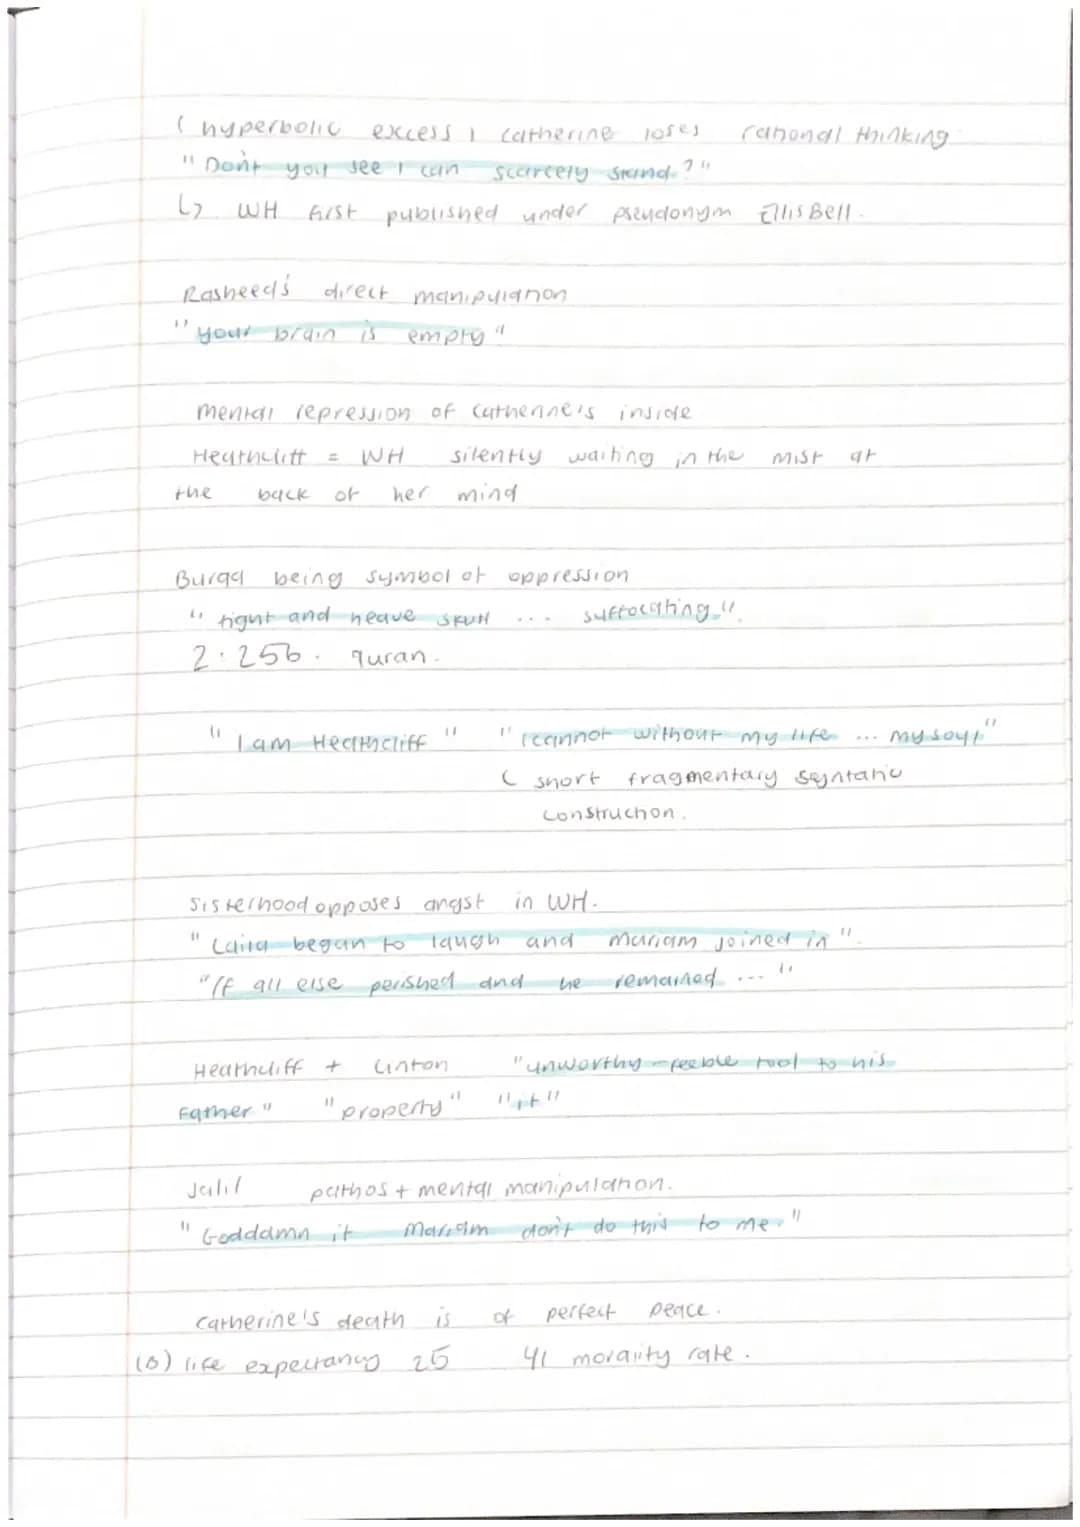 ( hyperbolic excess, catherine loses rational thinking.
"Don't you see I can scarcely stand?"
↳ WH first published under pseudonym Ellis Bell.
Rasheed's direct manipulation
"your brain is empty"
mental repression of Catherine's inside
Heathcliff = WH silently waiting in the mist at
the back of her mind
Burqa being symbol of oppression
"tight and heave skull ... suffocating".
2:256. quran.
"I am Heathcliff" "I cannot without my life ... my soul"
( short fragmentary syntatic
construction.
Sisterhood opposes angst in WH.
"Laila began to laugh and Mariam joined in".
"If all else perished and he remained ..."
Heathcliff + Linton "unworthy-feeble tool to his
Father" "property" "it"
Jalil pathos + mental manipulation.
"Goddamn it Mariam don't do this to me."
Catherine's death is of perfect peace.
(6) life expectancy 25 41 morality rate.